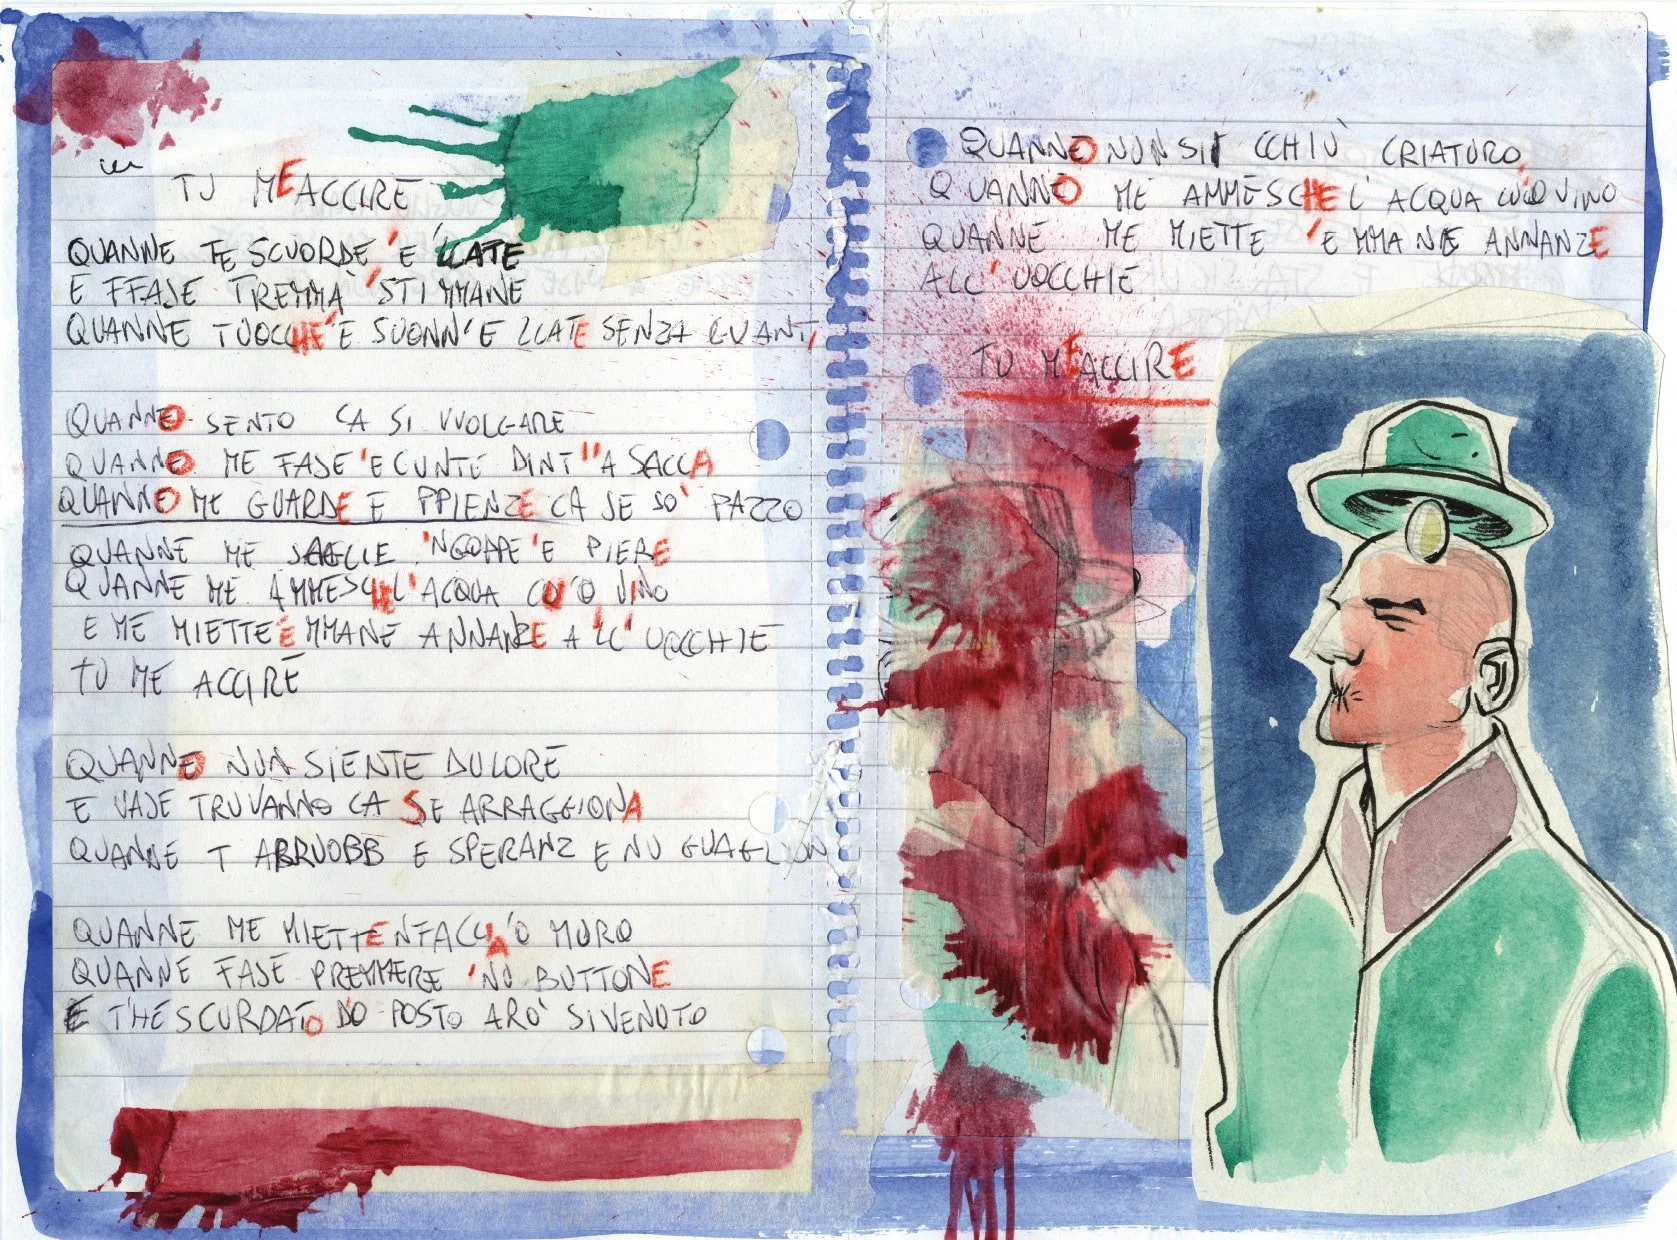 TU ME ACCIRE
QUANNE TE SCUORDE 'E LLATE
E FFAJE TREMMÀ 'STI MMANE
QUANNE TUOCCHE 'E SUONN'E LLATE SENZA GUANTI
QUANNO SENTO CA SI VVOLGARE
QUANNO ME FAJE 'E CUNTE DINT''A SACCA
QUANNO ME GUARDE E PPIENZE CA JE SO' PAZZO
QUANNE ME SAGLIE 'NGOPPE 'E PIERE
QUANNE ME AMMESCHE L'ACQUA CU 'O VINO
E ME MIETTE E MMANE ANNANZE A LL'UOCCHIE
TU ME ACCIRE
QUANNO NUN SIENTE DULORE
E VAJE TRUVANNO CA SE ARRAGGIONA
QUANNE T ARRUOBB E SPERANZ E NU GUAGLION
QUANNE ME MIETTE NFACCIA 'O MURO
QUANNE FAJE PREMMERE 'NU BUTTONE
E T'HE SCURDATO DO POSTO ARO' SI VENUTO
QUANNO NUN SI CCHIÙ CRIATURO
QUANNO ME AMMESCHE L'ACQUA CU 'O VINO
QUANNE ME MIETTE 'E MMANE ANNANZE
ALL'UOCCHIE
TU ME ACCIRE